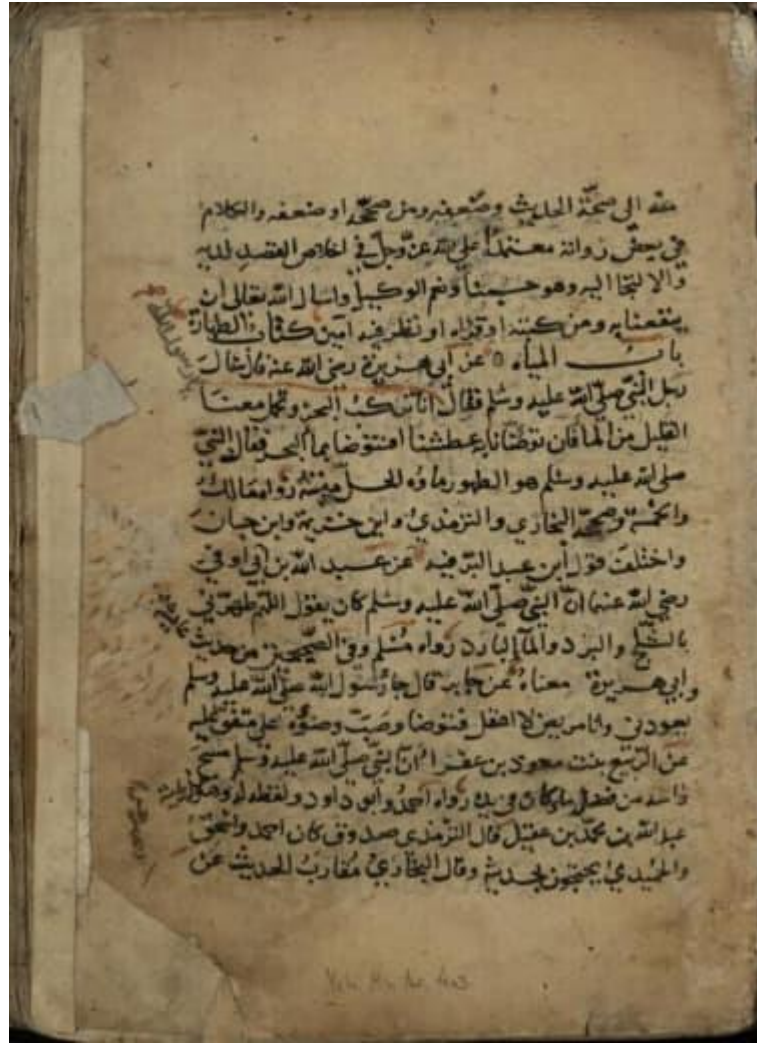 منه الى صحة الحديث وضعفه ومن صححه او ضعفه والكلام
في بعض رواته معتمدا على الله عز وجل في اخلاص القصد لديه
والالتجا اليه وهو حسبنا ونعم الوكيل واسال الله تعالى ان
ينفعنا به ومن كتبه او قراه او نظر فيه امين كتاب الطهارة
باب المياه عن ابي هريرة رضي الله عنه قال سال
رجل النبي صلى الله عليه وسلم فقال انا نركب البحر ونحمل معنا
القليل من الما فان توضانا به عطشنا افنتوضا بما البحر فقال النبي
صلى الله عليه وسلم هو الطهور ماؤه الحل ميتته رواه مالك
والخمسة وصححه البخاري والترمذي وابن خزيمة وابن حبان
واختلف قول ابن عبد البر فيه عن عبد الله بن ابي اوفى
رضي الله عنهما ان النبي صلى الله عليه وسلم كان يقول اللهم طهرني
بالثلج والبرد والما البارد رواه مسلم وفي الصحيحين من حديث
وابي هريرة معناه عن جابر قال جا رسول الله صلى الله عليه وسلم
يعودني وانا مريض لا اعقل فتوضا وصب وضوه علي متفق عليه
عن الربيع بنت معوذ بن عفرا ان النبي صلى الله عليه وسلم مسح
راسه من فضل ما كان في يده رواه احمد وابو داود ولفظه له
عبد الله بن محمد بن عقيل قال الترمذي صدوق كان احمد واسحق
والحميدي يحتجون بحديثه وقال البخاري مقارب الحديث عن